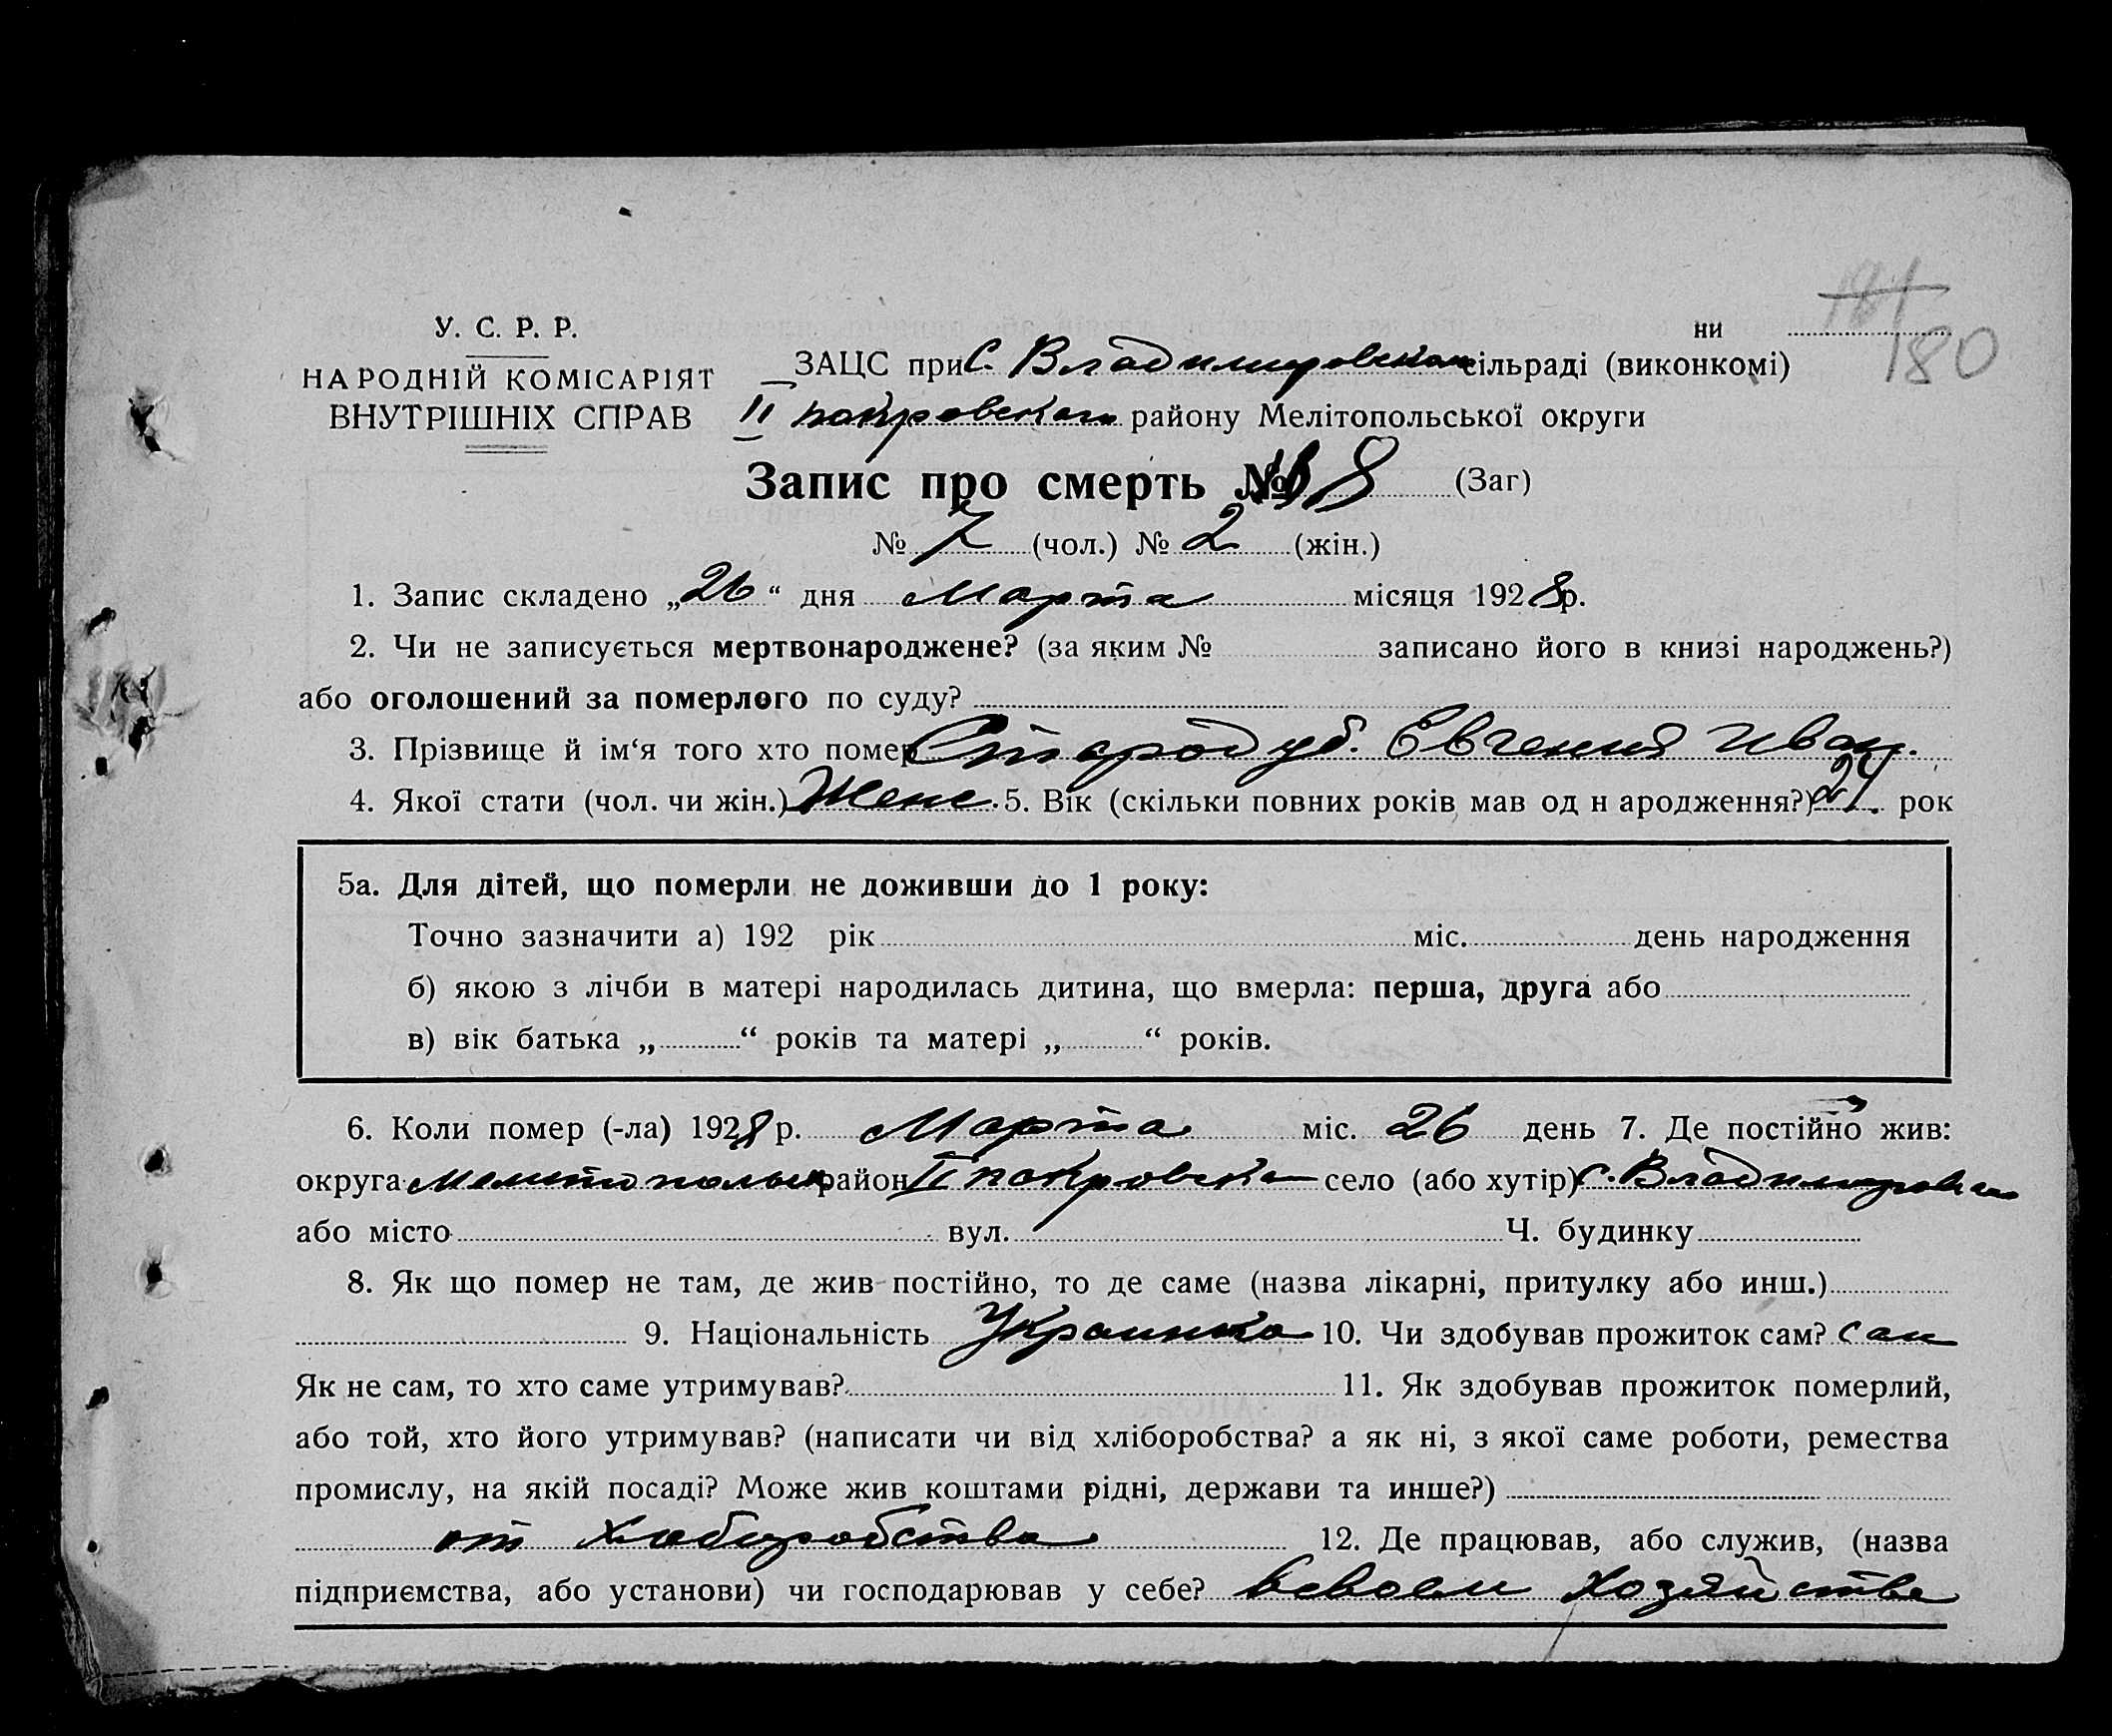 181
180
У. С. Р. Р.
ни
НАРОДНІЙ КОМІСАРІЯТ
ЗАЦС при С. Владимировском сільраді (виконкомі)
ВНУТРІШНІХ СПРАВ
II покровского району Мелітопольської округи
Запис про смерть № 8 (Заг)
№ 7 (чол.) № 2 (жін.)
1. Запис складено „26“ дня Марта місяця 1928 р.
2. Чи не записується мертвонароджене? (за яким № записано його в книзі народжень?)
або оголошений за померлого по суду?
3. Прізвище й ім‘я того хто помер Стародуб. Евгения Иван.
4. Якої стати (чол. чи жін.) Женс. 5. Вік (скільки повних років мав од н ародження?) 24. рок
5а. Для дітей, що померли не доживши до 1 року:
Точно зазначити а) 192 рік міс. день народження
б) якою з лічби в матері народилась дитина, що вмерла: перша, друга або
в) вік батька „ “ років та матері „ “ років.
6. Коли помер (-ла) 1928 р. Марта міс. 26 день 7. Де постійно жив:
округа район II покровска село (або хутір) С. Владимировка
або місто вул. Ч. будинку
8. Як що помер не там, де жив постійно, то де саме (назва лікарні, притулку або инш.)
9. Національність Украинка 10. Чи здобував прожиток сам? сам
Як не сам, то хто саме утримував? 11. Як здобував прожиток померлий,
або той, хто його утримував? (написати чи від хліборобства? а як ні, з якої саме роботи, ремества
промислу, на якій посаді? Може жив коштами рідні, держави та инше?)
от Хлеборобства 12. Де працював, або служив, (назва
підприємства, або установи) чи господарював у себе? всвоем Хозяйстве